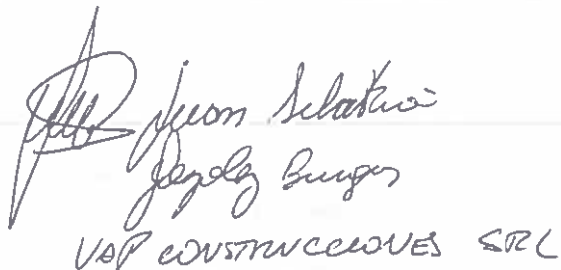 Juan Sebastián
Burgos
VAP CONSTRUCCIONES SRL